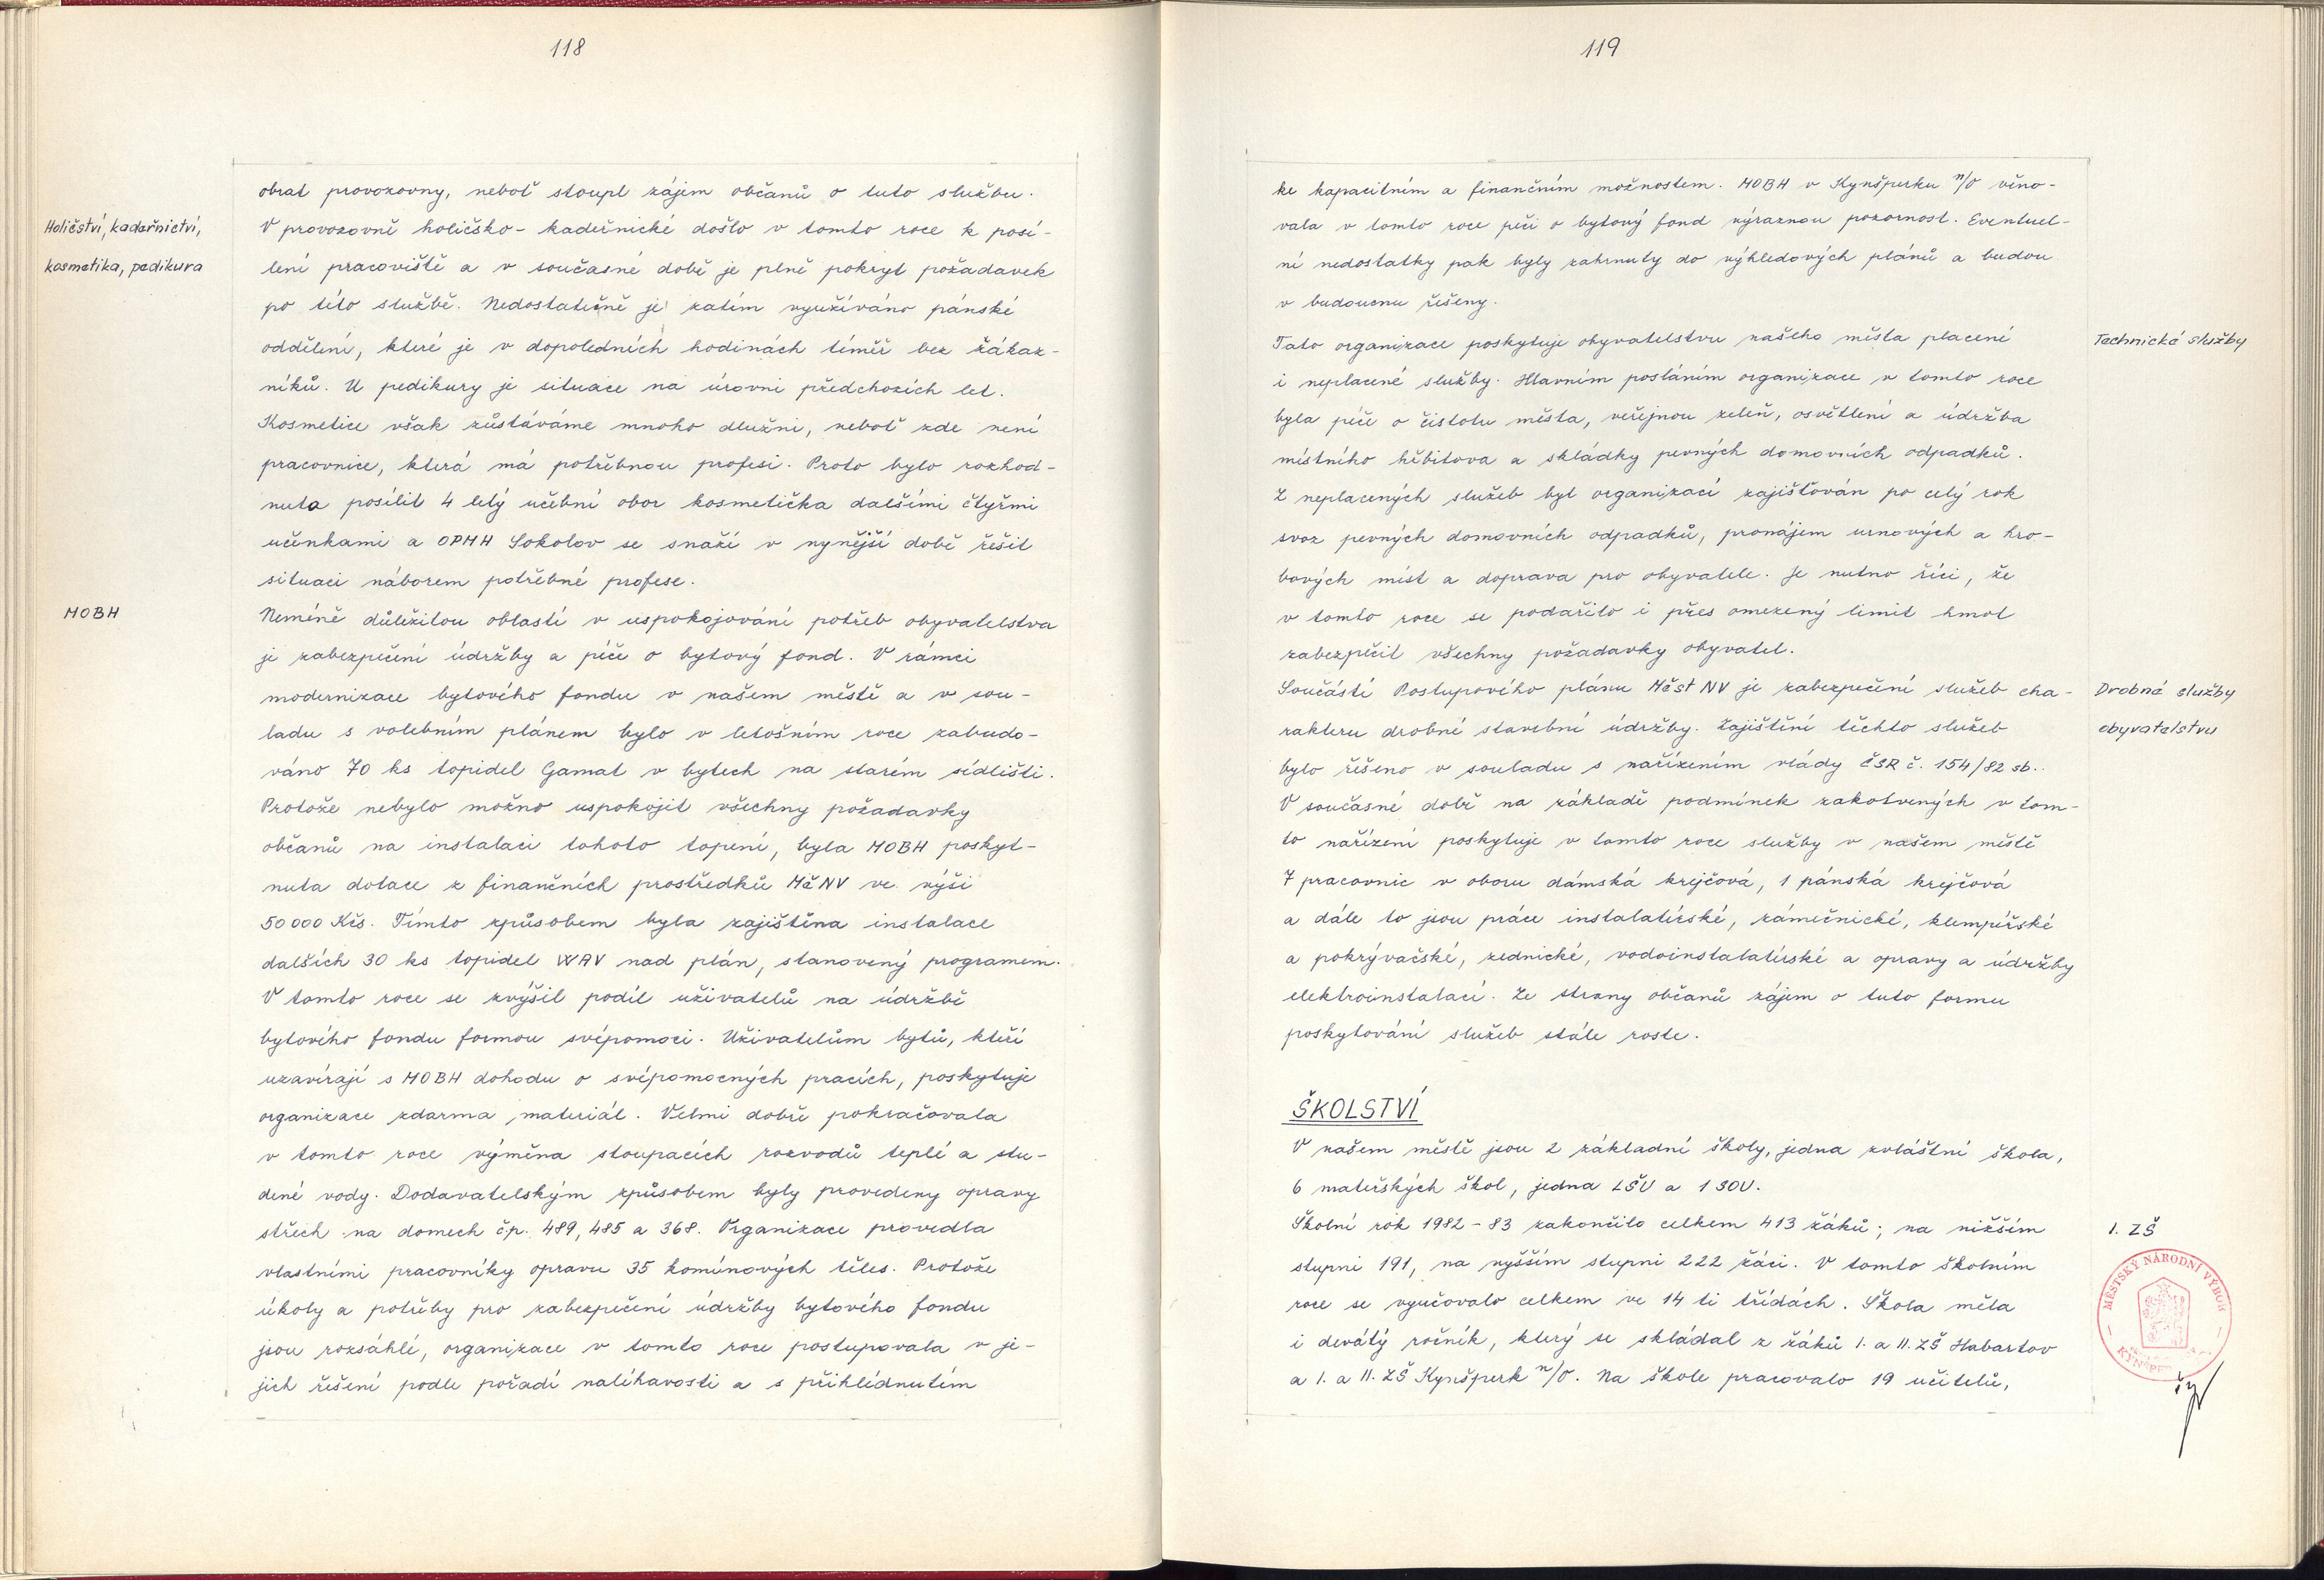 118
obrat provozovny, neboť stoupl zájem občanů o tuto službu.
Holičství, kadeřnictví,
V provozovně holičsko-kadeřnické došlo v tomto roce k posí-
kosmetika, pedikura
lení pracoviště a v současné době je plně pokryt požadavek
po této službě. Nedostatečně je zatím využíváno pánské
oddělení, které je v dopoledních hodinách téměř bez žákaz-
níků. U pedikury je situace na úrovni předchozích let.
Kosmetice však zůstáváme mnoho dlužni, neboť zde není
pracovnice, která má potřebnou profesi. Proto bylo rozhod-
nuto posílit 4 letý učební obor kosmetička dalšími čtyřmi
učenkami a OPMH Sokolov se snaží v nynější době řešit
situaci náborem potřebné profese.
MOBH
Neméně důležitou oblastí v uspokojování potřeb obyvatelstva
je zabezpečení údržby a péče o bytový fond. V rámci
modernizace bytového fondu v našem městě a v sou-
ladu s volebním plánem bylo v letošním roce zabudo-
váno 70 ks topidel Gamat v bytech na starém sídlišti.
Protože nebylo možno uspokojit všechny požadavky
občanů na instalaci tohoto topení, byla MOBH poskyt-
nuta dotace z finančních prostředků MěNV ve výši
50 000 Kčs. Tímto způsobem byla zajištěna instalace
dalších 30 ks topidel WAV nad plán, stanovený programem.
V tomto roce se zvýšil podíl uživatelů na údržbě
bytového fondu formou svépomoci. Uživatelům bytů, kteří
uzavírají s MOBH dohodu o svépomocných pracích, poskytuje
organizace zdarma materiál. Velmi dobře pokračovala
v tomto roce výměna stoupacích rozvodů teplé a stu-
dené vody. Dodavatelským způsobem byly provedeny opravy
střech na domech čp. 489, 485 a 368. Organizace provedla
vlastními pracovníky opravu 35 komínových těles. Protože
úkoly a potřeby pro zabezpečení údržby bytového fondu
jsou rozsáhlé, organizace v tomto roce postupovala v je-
jich řešení podle pořadí naléhavosti a s přihlédnutím
119
ke kapacitním a finančním možnostem. MOBH v Kynšperku n/O věno-
vala v tomto roce péči o bytový fond výraznou pozornost. Eventuel-
ní nedostatky pak byly zahrnuty do výhledových plánů a budou
v budoucnu řešeny.
Tato organizace poskytuje obyvatelstvu našeho města placené
Technické služby
i neplacené služby. Hlavním posláním organizace v tomto roce
byla péče o čistotu města, veřejnou zeleň, osvětlení a údržba
místního hřbitova a skládky pevných domovních odpadků.
Z neplacených služeb byl organizací zajišťován po celý rok
svoz pevných domovních odpadků, pronájem urnových a hro-
bových míst a doprava pro obyvatele. Je nutno říci, že
v tomto roce se podařilo i přes omezený limit hmot
zabezpečit všechny požadavky obyvatel.
Součástí Postupového plánu MěstNV je zabezpečení služeb cha-
Drobné služby
rakteru drobné stavební údržby. Zajištění těchto služeb
obyvatelstvu
bylo řešeno v souladu s nařízením vlády ČSR č. 154/82 sb..
V současné době na základě podmínek zakotvených v tom-
to nařízení poskytuje v tomto roce služby v našem městě
7 pracovnic v oboru dámská krejčová, 1 pánská krejčová
a dále to jsou práce instalatérské, zámečnické, klempířské
a pokrývačské, zednické, vodoinstalatérské a opravy a údržby
elektroinstalací. Ze strany občanů zájem o tuto formu
poskytování služeb stále roste.
ŠKOLSTVÍ
V našem městě jsou 2 základní školy, jedna zvláštní škola,
6 mateřských škol, jedna LŠU a 1 SOU.
Školní rok 1982-83 zakončilo celkem 413 žáků; na nižším
1. ZŠ
stupni 191, na vyšším stupni 222 žáci. V tomto školním
MĚSTSKÝ NÁRODNÍ VÝBOR
roce se vyučovalo celkem ve 14 ti třídách. Škola měla
i devátý ročník, který se skládal z žáků I. a II. ZŠ Habartov
a I. a II. ZŠ Kynšperk n/O. Na škole pracovalo 19 učitelů,